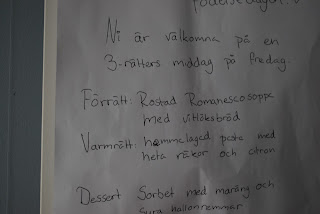 födelsedagen!
Ni är välkomna på en
3-rätters middag på fredag.
Förrätt: Rostad Romanescosoppa
med vitlöksbröd
Varmrätt: hemmelagad pasta med
heta räkor och citron
Dessert Sorbet med maräng och
sura hallonremmar